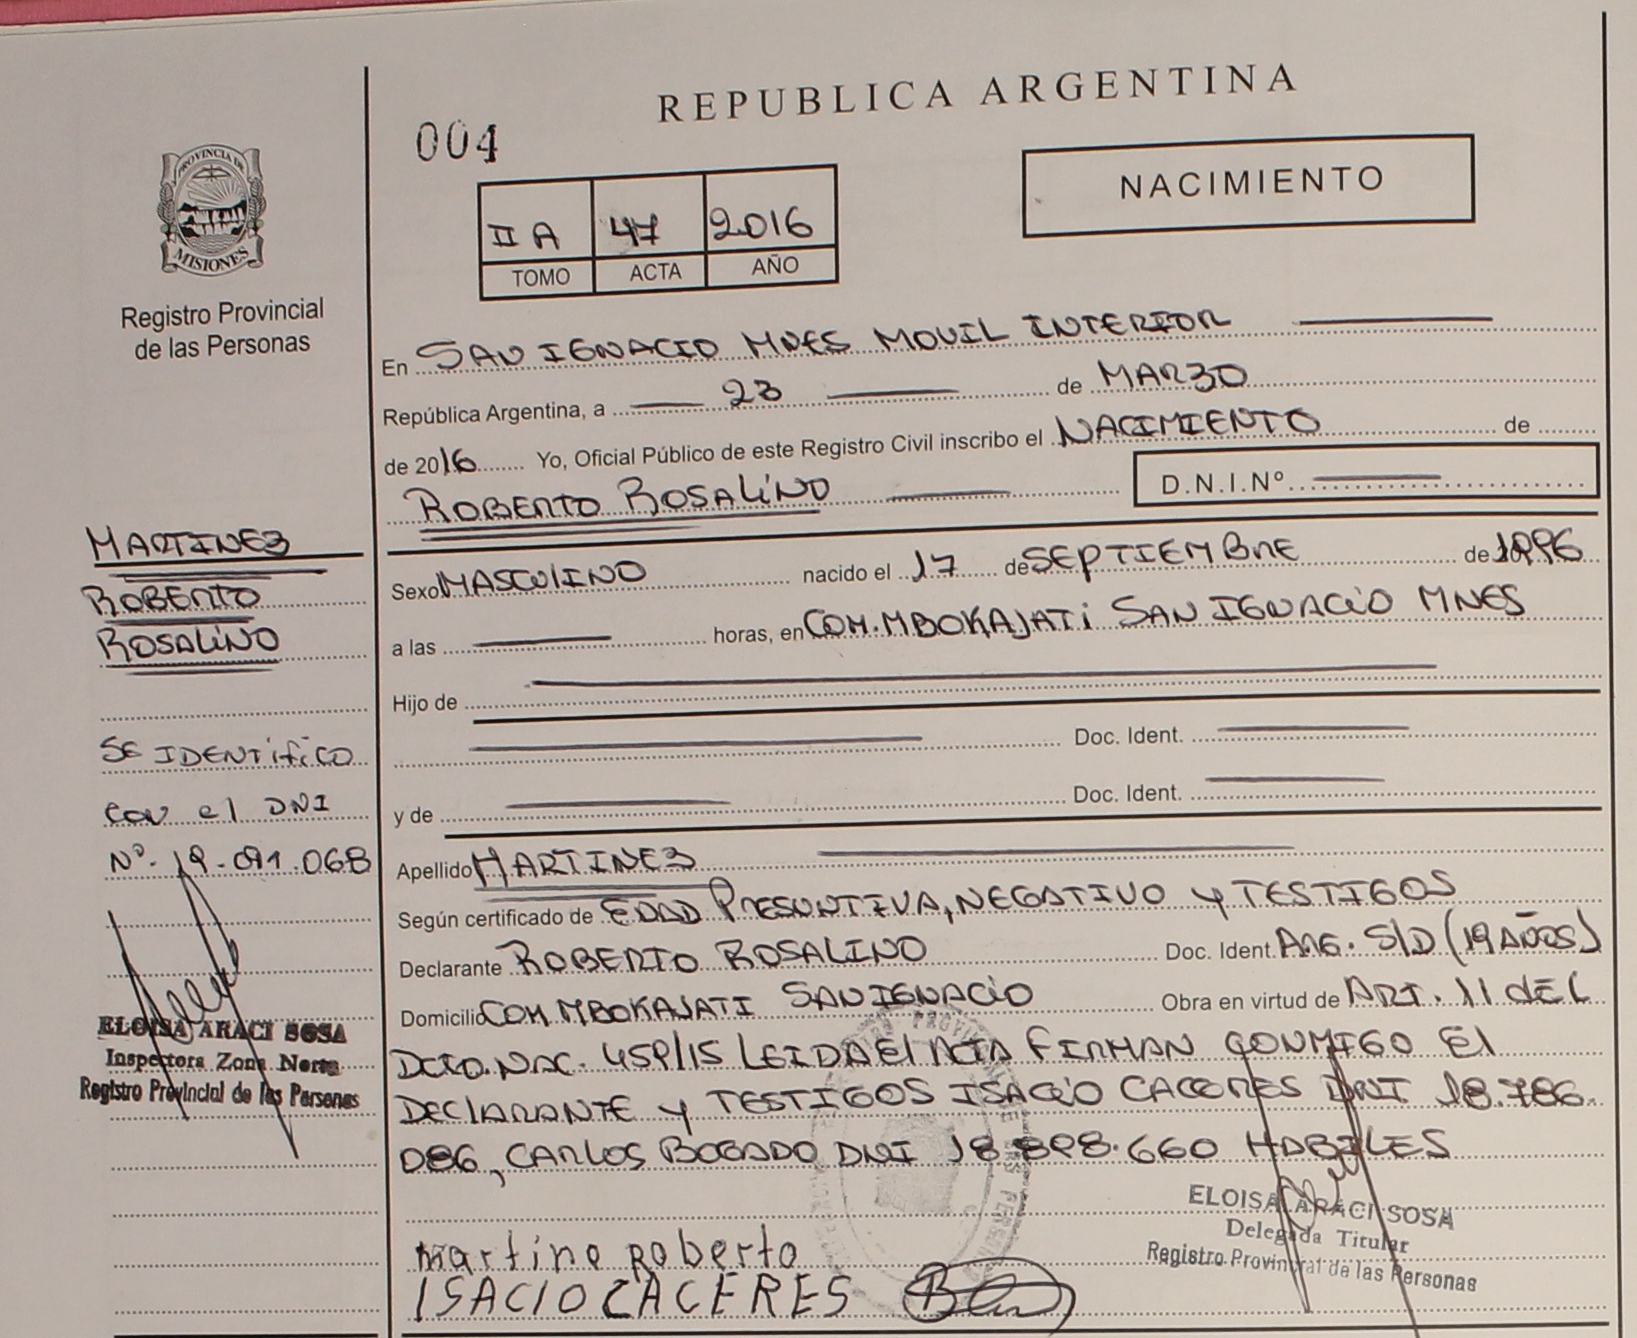 REPUBLICA ARGENTINA
004
NACIMIENTO
II A 47 2016
TOMO ACTA AÑO
PROVINCIA DE
MISIONES
Registro Provincial
de las Personas
MARTINEZ
ROBERTO
ROSALINO
SE IDENTIFICO
CON el DNI
Nº. 19.091.068
ELOISA ARACI SOSA
Inspectora Zona Norte
Registro Provincial de las Personas
En SAN IGNACIO MNES MOVIL INTERIOR
República Argentina, a 23 de MARZO
de 2016 Yo, Oficial Público de este Registro Civil inscribo el NACIMIENTO de
ROBERTO ROSALINO D.N.I.Nº
Sexo MASCULINO nacido el 17 de SEPTIEMBRE de 1996
a las horas, en COM. MBOKAJATI SAN IGNACIO MNES
Hijo de
Doc. Ident.
y de Doc. Ident.
Apellido MARTINEZ
Según certificado de EDAD PRESUNTIVA, NEGATIVO y TESTIGOS
Declarante ROBERTO ROSALINO Doc. Ident. ARG. S/D (19 AÑOS)
Domicilio COM MBOKAJATI SAN IGNACIO Obra en virtud de ART. 11 del
DCTO. NAC. 459/15 LEIDA El ACTA FIRMAN CONMIGO El
DECLARANTE y TESTIGOS ISACIO CACERES DNI 18.786.
086, CARLOS BOGADO DNI 18.898.660 HABILES
ELOISA ARACI SOSA
Delegada Titular
Registro Provincial de las Personas
martine roberto
ISACIO CACERES